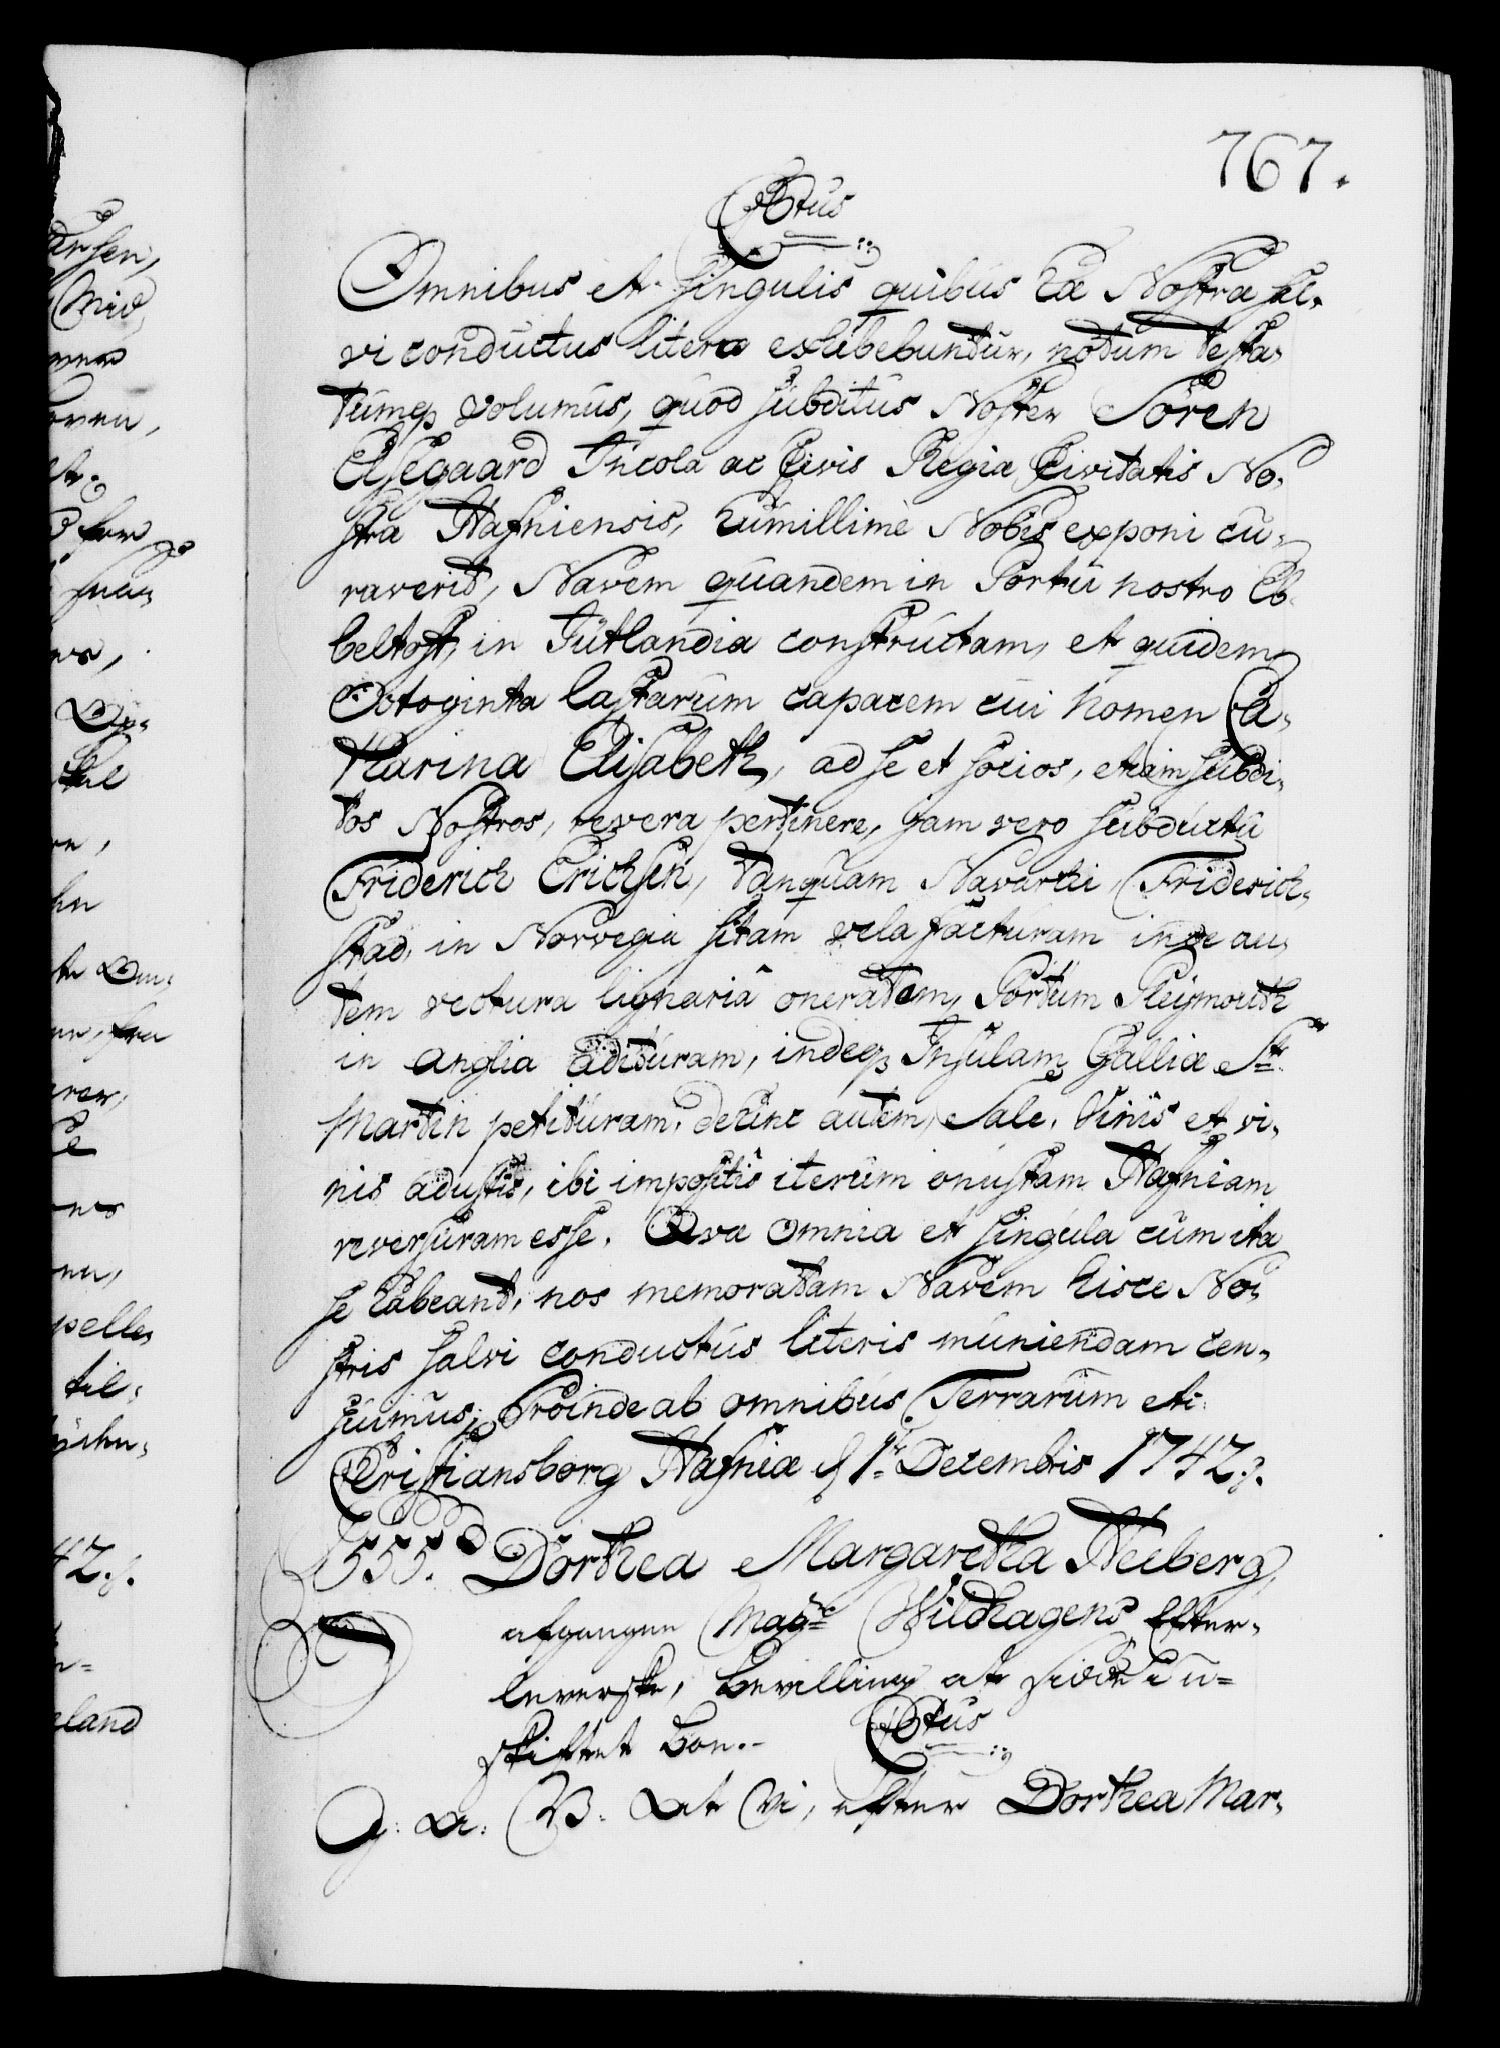 767.
C6tus
Omnibus et singulis quibus hæ Nostræ sal-
vi conductus literæ exhibebuntur, notum testa-
tumq volumus, quod subditus Noster Sören
Elsegaard Incola ac Civis Regiæ Civitatis No-
stra Hafniensis, humillime Nobis exponi cu-
raverit, Navem quandem in Portu nostro Eb-
beltoft, in Jutlandia constructam, et quidem
Octoginta lastarum capacem cui nomen Ca-
tharina Elisabeth, ad se et socios, etiam subdi-
tos Nostros, revera pertinere, jam vero sub ductu
Friderich Erichsen, tanquam Navarchi, Friderich-
stad, in Norvegia sitam vela facturam inde au-
tem vectura lignariâ oneratam, Portum Pleijmouth
in Anglia adituram, indeq Insulam Galliæ St.
Martin petituram, dehinc autem, Sale, Viniis et vi-
nis adustis, ibi impositis iterum onustam Hafniam
reversuram esse. Qvæ omnia et singula cum ita
se habeant, nos memoratam Navem hisce No-
stris salvi conductus literis muniendam cen-
suimus; Proinde ab omnibus Terrarum etc:
Christiansborg Hafniæ d 1te Decembris 1742.
555. Dorthea Margaretha Heiberg,
afgangne Magr Wildhagens Efter-
leverske, bevilling at sidde i u-
skiftet boe.- C6tus
G: A: V: At Vi, efter Dorthea Mar-